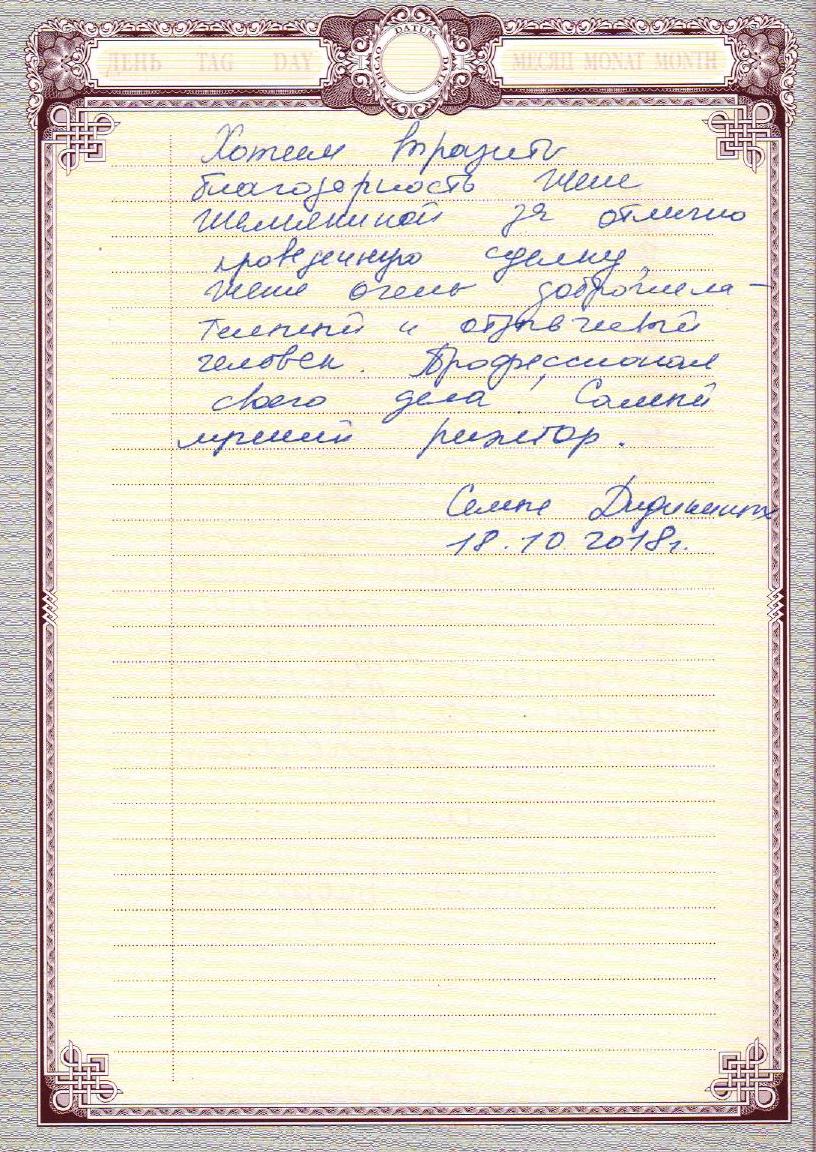 ДЕНЬ TAG DAY ЧИСЛО DATUM DATE МЕСЯЦ MONAT MONTH
Хотим выразить
благодарность Жене
за отлично
проведенную сделку
Женя очень доброжела-
тельный и отзывчивый
человек. Профессионал
своего дела, Самый
лучший риэлтор.
Семья
18.10.2018г.